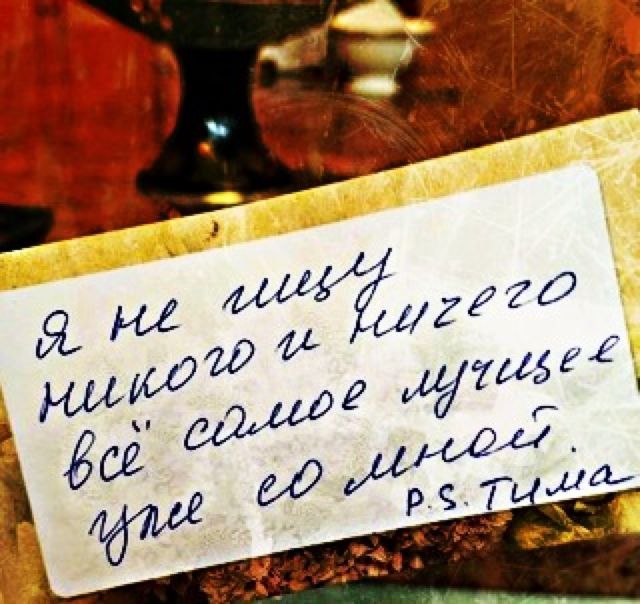 Я не ищу
никого и ничего
всё самое лучшее
уже со мной.
P.S. Тима